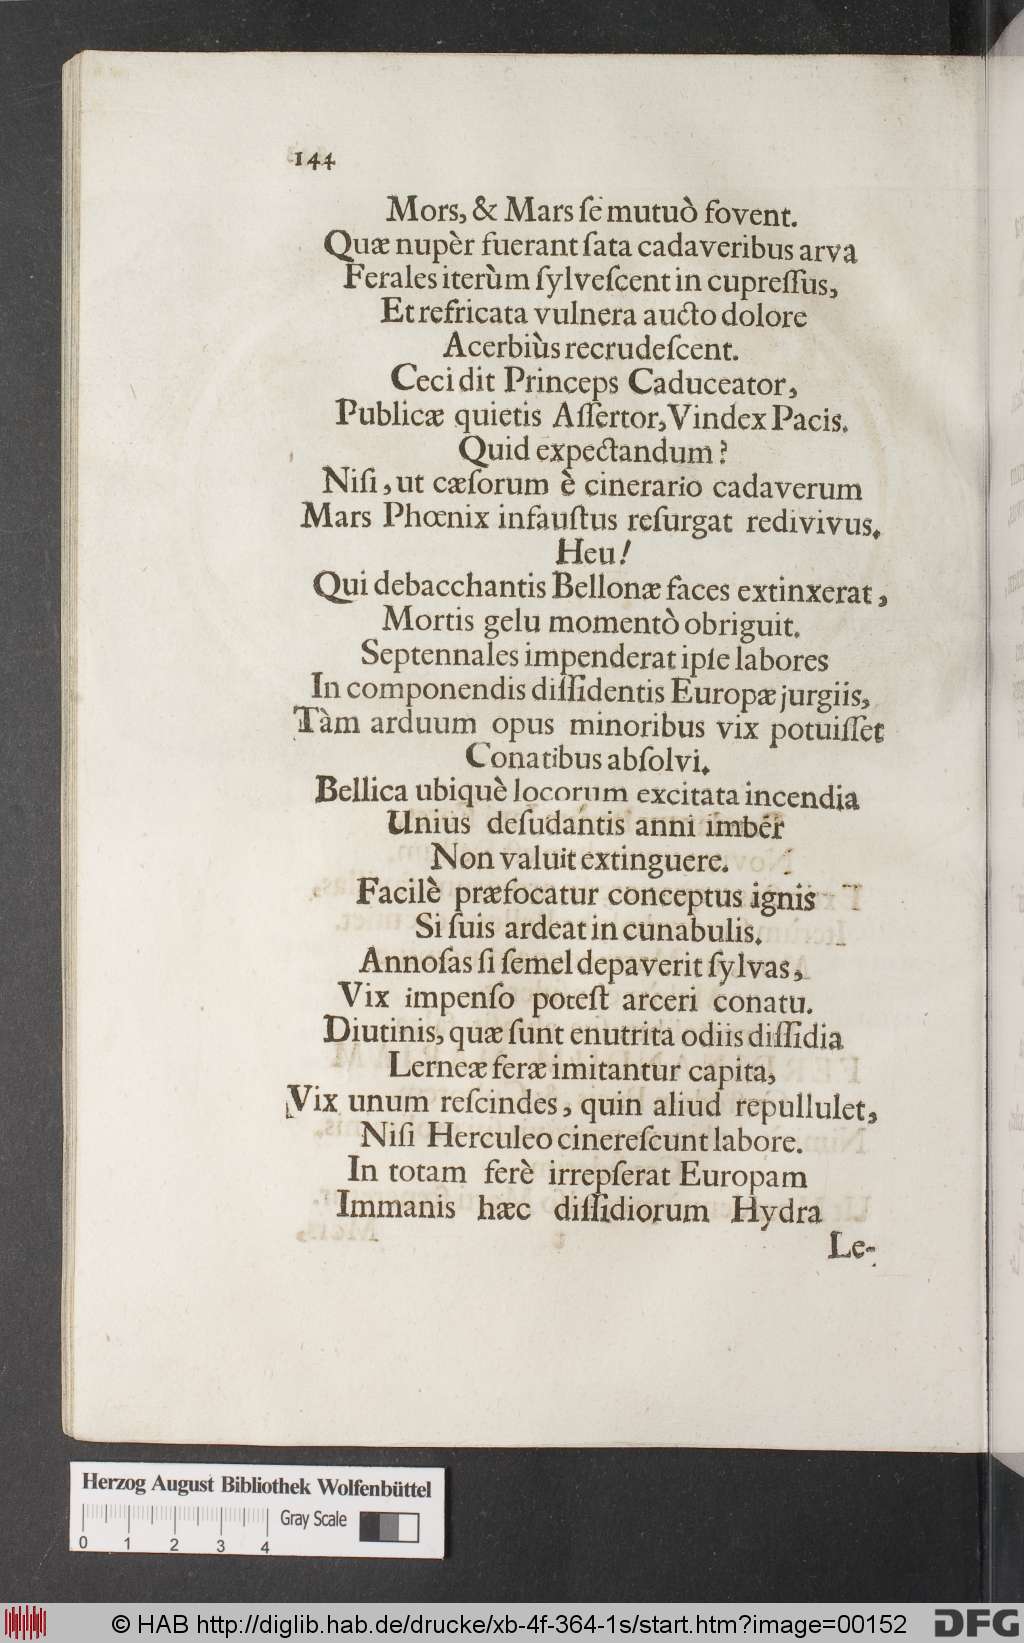 144
Mors, & Mars ſe mutuò fovent.
Quæ nupèr fuerant ſata cadaveribus arva
Ferales iterùm ſylveſcent in cupreſſus,
Et refricata vulnera aucto dolore
Acerbiùs recrudeſcent.
Cecidit Princeps Caduceator,
Publicæ quietis Aſſertor, Vindex Pacis.
Quid expectandum?
Niſi, ut cæſorum è cinerario cadaverum
Mars Phœnix infauſtus reſurgat redivivus.
Heu!
Qui debacchantis Bellonæ faces extinxerat,
Mortis gelu momentò obriguit.
Septennales impenderat ipſe labores
In componendis diſſidentis Europæ jurgiis,
Tàm arduum opus minoribus vix potuiſſet
Conatibus abſolvi.
Bellica ubiquè locorum excitata incendia
Unius deſudantis anni imber
Non valuit extinguere.
Facilè præfocatur conceptus ignis
Si ſuis ardeat in cunabulis.
Annoſas ſi ſemel depaverit ſylvas,
Vix impenſo poteſt arceri conatu.
Diutinis, quæ ſunt enutrita odiis diſſidia
Lerneæ feræ imitantur capita,
Vix unum reſcindes, quin aliud repullulet,
Niſi Herculeo cinereſcunt labore.
In totam ferè irrepſerat Europam
Immanis hæc diſſidiorum Hydra
Le-
Herzog August Bibliothek Wolfenbüttel
Gray Scale
0 1 2 3 4
© HAB http://diglib.hab.de/drucke/xb-4f-364-1s/start.htm?image=00152
DFG